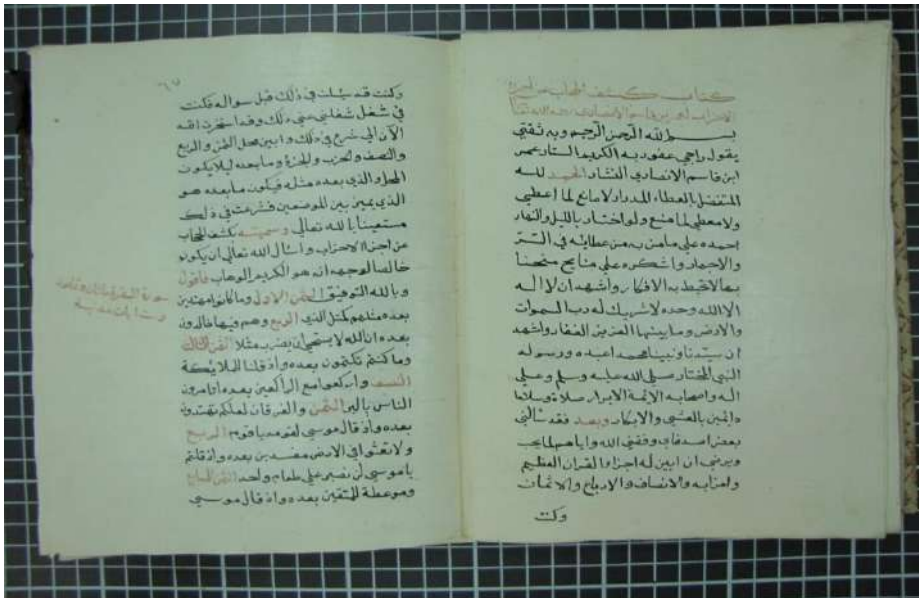 كتاب كشف الحجاب عن اجزاء
الاحزاب لعمر بن قاسم الانصاري رحمه الله تعا
بسم الله الرحمن الرحيم وبه ثقتي
يقول راجي عفو ربه الكريم الستار عمر
ابن قاسم الانصاري النشار الحمد لله
المتفضل بالعطاء المدرار لا مانع لما اعطى
ولا معطي لما منع ولو اختار بالليل والنهار
احمده على ما من به من عطائه في السر
والاجهار واشكره على منايح منحنا
بها لا تحيط به الافكار واشهد ان لا اله
الا الله وحده لا شريك له رب السموات
والارض وما بينهما العزيز الغفار واشهد
ان سيدنا ونبينا محمدا عبده ورسوله
النبي المختار صلى الله عليه وسلم وعلى
اله واصحابه الائمة الابرار صلاة وسلاما
دائمين بالعشي والابكار وبعد فقد سالني
بعض اصدقاي وفقني الله واياهم لما يحب
ويرضى ان ابين له اجزا القران العظيم
واحزابه والانصاف والارباع والاثمان
وكنت
٦٧
وكنت قد سيلت في ذلك قبل سواله فكنت
في شغل شغلني عن ذلك وقد استخرت الله
الآن الى شرع في ذلك وابين محل الثمن والربع
والنصف والحزب والجزء وما بعده ليلا يكون
المحل والذي بعده مثله فيكون ما بعده هو
الذي يميز بين الموضعين فشرعت في ذلك
مستعينا بالله تعالى وسميته بكشف الحجاب
عن اجزاء الاحزاب واسال الله تعالى ان يكون
خالصا لوجهه انه هو الكريم الوهاب فاقول
وبالله التوفيق الثمن الاول وما كانوا مهتدين
بعده مثلهم كمثل الذي الربع وهم فيها خالدون
بعده ان الله لا يستحيي ان يضرب مثلا الثمن الثالث
وما كنتم تكتمون بعده واذ قلنا للملايكة
النصف واركعوا مع الراكعين بعده اتامرون
الناس بالبر الثمن والفرقان لعلكم تهتدون
بعده واذ قال موسى لقومه يا قوم الربع
ولا تعثوا في الارض مفسدين بعده واذ قلتم
يا موسى لن نصبر على طعام واحد الثمن السابع
وموعظة للمتقين بعده واذ قال موسى
سورة البقرة مائتان وثمانون
وست ايات مدنية